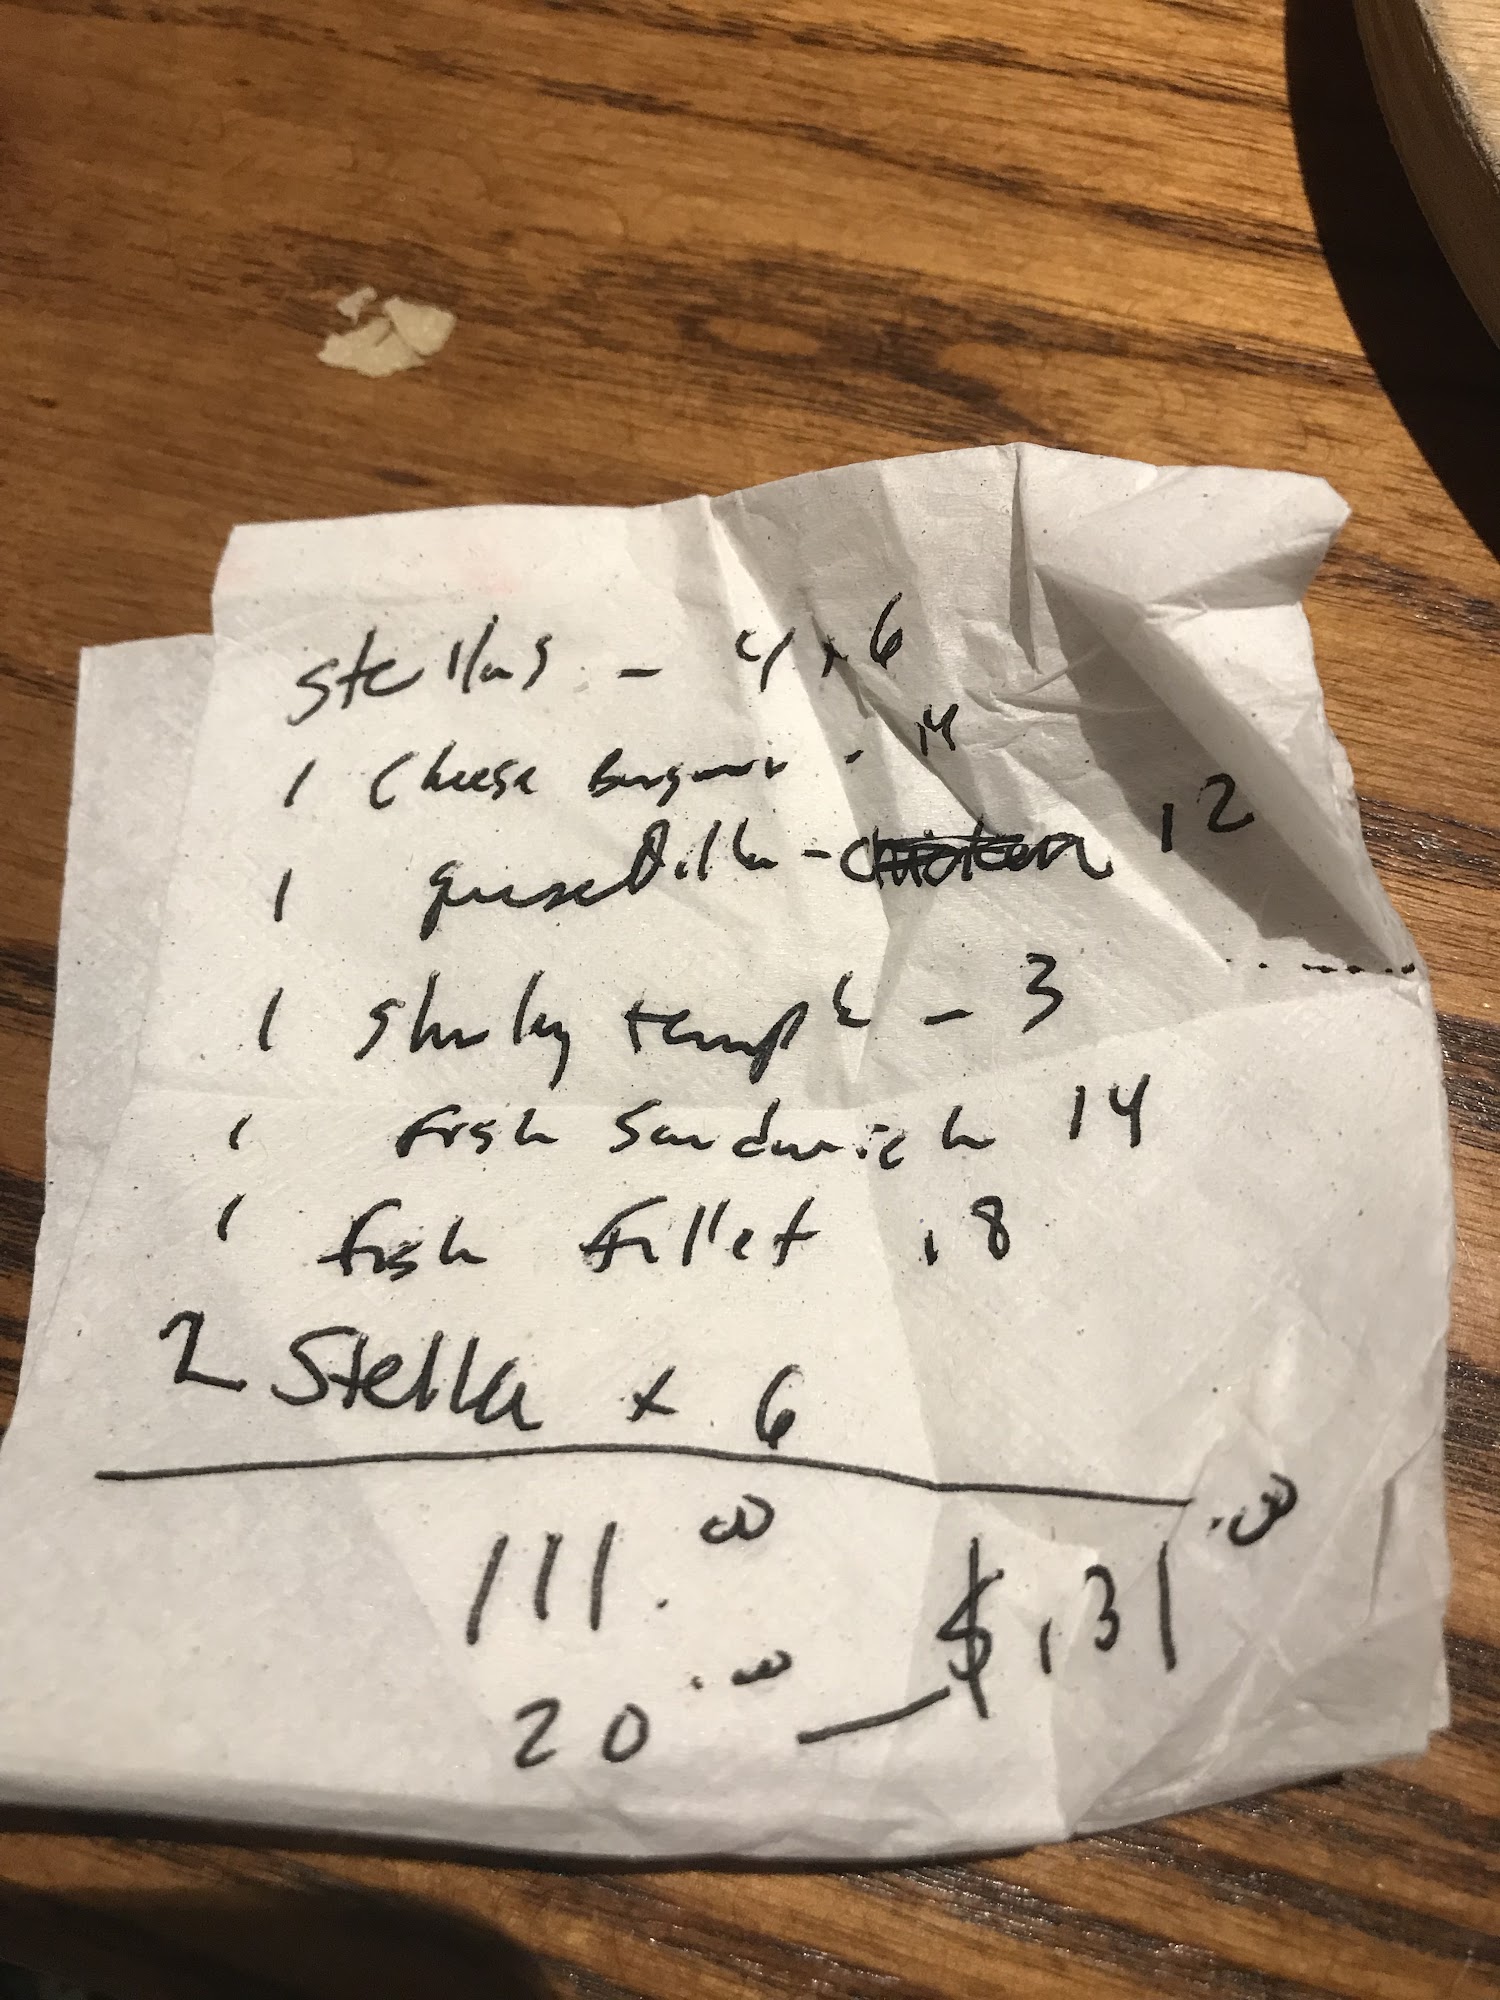 Stellas - 4 x 6
1 Cheese Burger - 14
1 quesadilla - chicken 12
1 Shirley temple - 3
1 fish Sandwich 14
1 fish fillet 18
2 Stella x 6
111.00
20.00 — $131.00